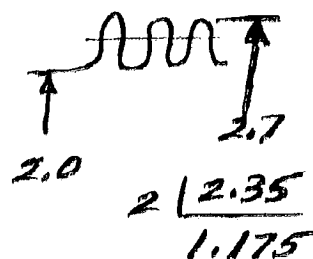 2.7
2.0
2 | 2.35
1.175